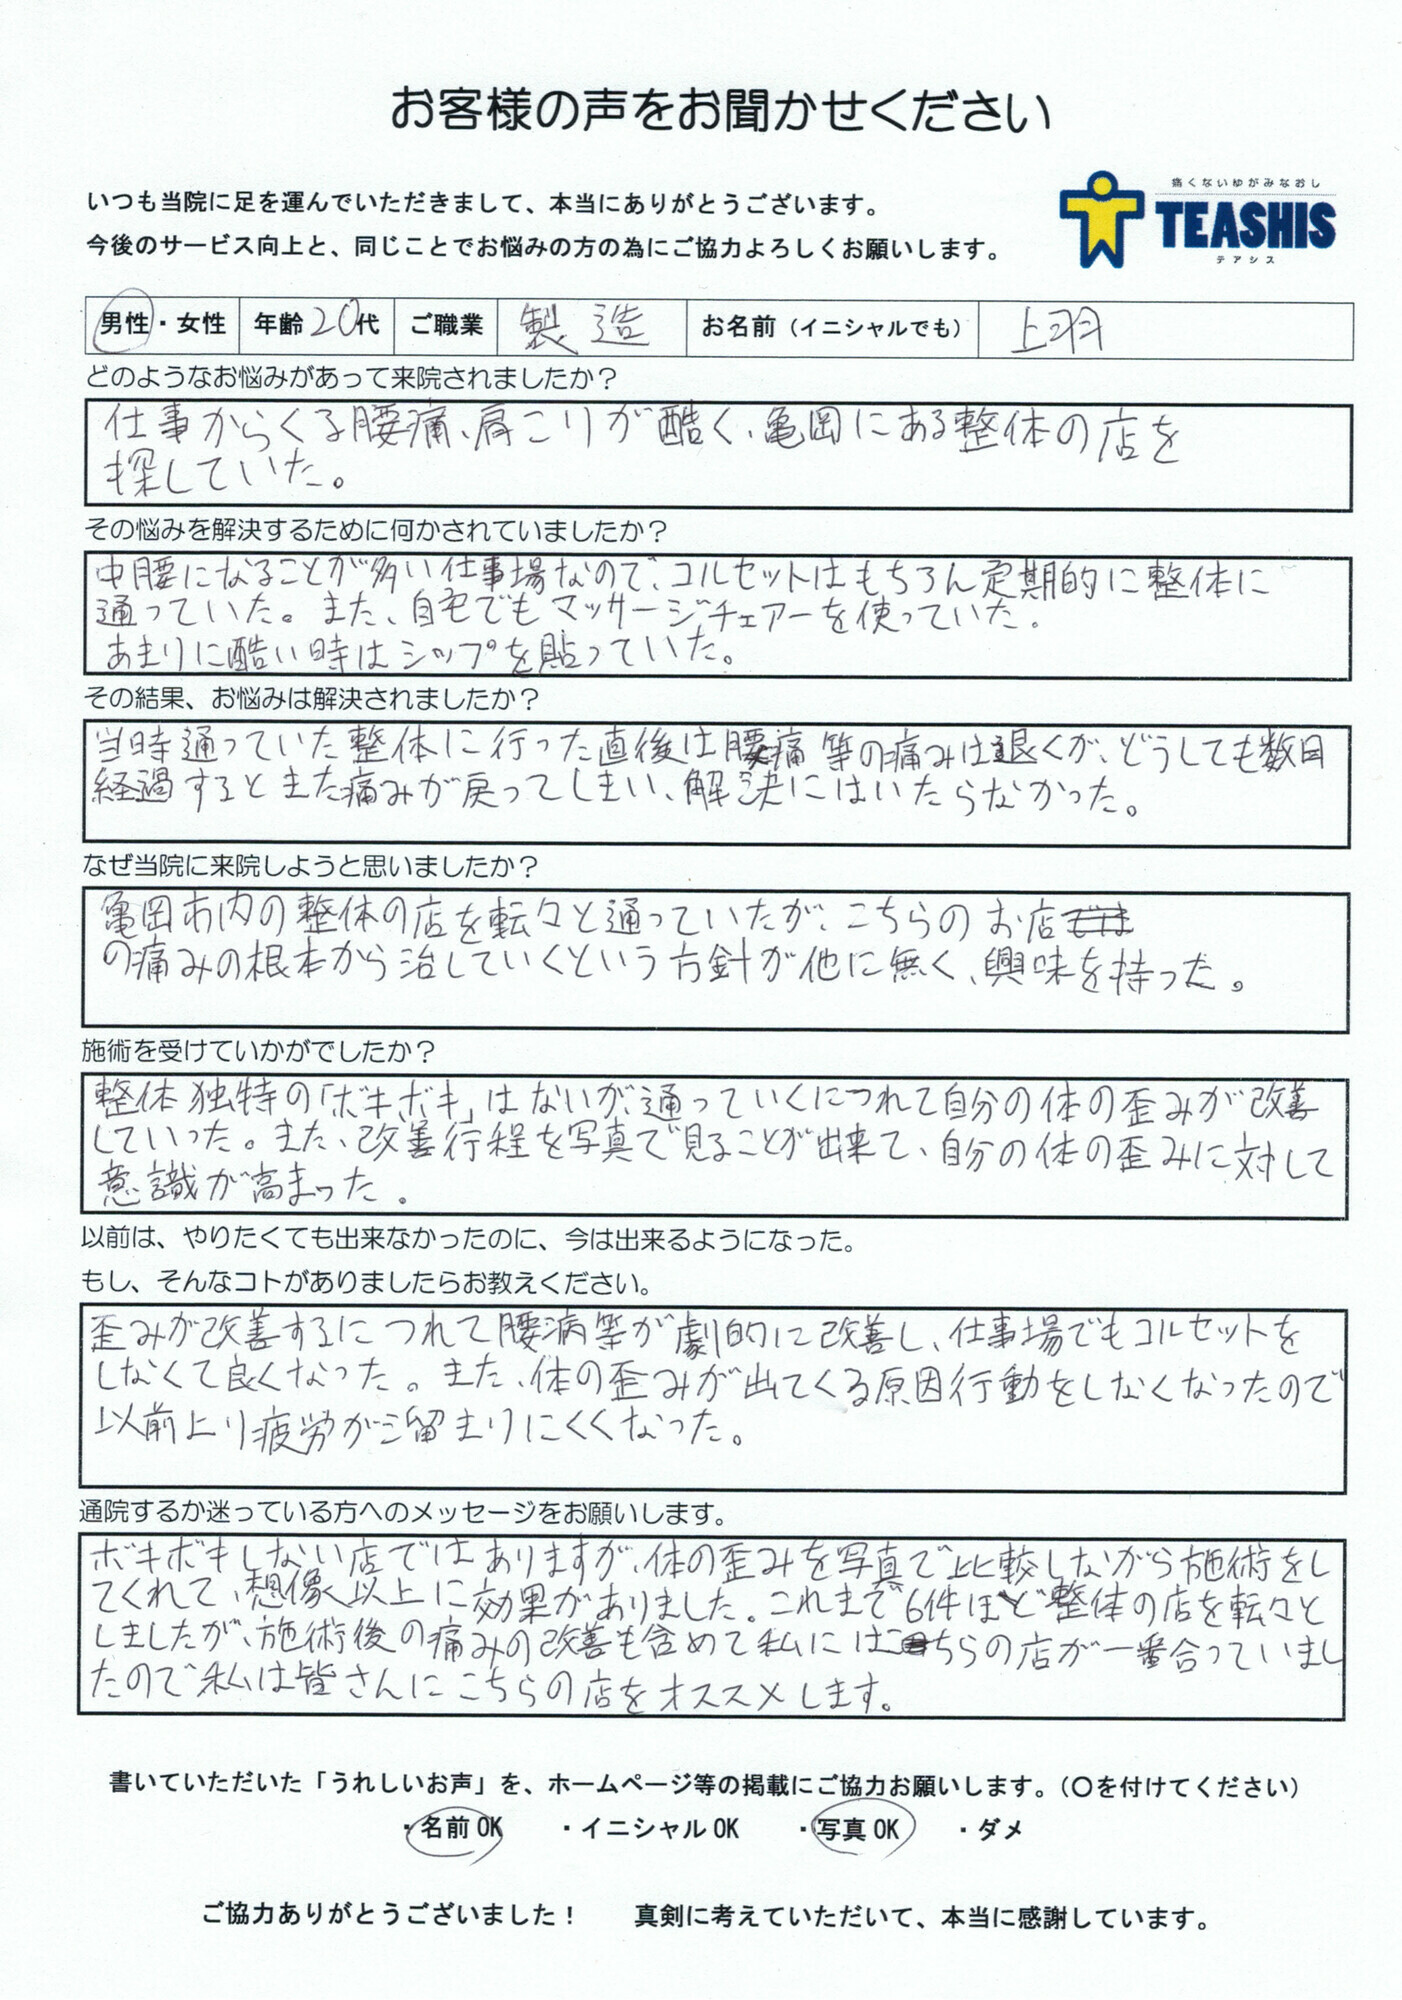 お客様の声をお聞かせください
いつも当院に足を運んでいただきまして、本当にありがとうございます。
今後のサービス向上と、同じことでお悩みの方の為にご協力よろしくお願いします。
痛くないゆがみなおし
TEASHIS
テアシス
男性・女性 年齢 20代 ご職業 製造 お名前（イニシャルでも） 上羽
どのようなお悩みがあって来院されましたか？
仕事からくる腰痛、肩こりが酷く、亀岡にある整体の店を
探していた。
その悩みを解決するために何かされていましたか？
中腰になることが多い仕事場なので、コルセットはもちろん定期的に整体に
通っていた。また、自宅でもマッサージチェアーを使っていた。
あまりに酷い時はシップを貼っていた。
その結果、お悩みは解決されましたか？
当時通っていた整体に行った直後は腰痛等の痛みは退くが、どうしても数日
経過するとまた痛みが戻ってしまい、解決にはいたらなかった。
なぜ当院に来院しようと思いましたか？
亀岡市内の整体の店を転々と通っていたが、こちらのお店では
の痛みの根本から治していくという方針が他に無く、興味を持った。
施術を受けていかがでしたか？
整体独特の「ボキボキ」はないが、通っていくにつれて自分の体の歪みが改善
していった。また、改善行程を写真で見ることが出来て、自分の体の歪みに対して
意識が高まった。
以前は、やりたくても出来なかったのに、今は出来るようになった。
もし、そんなコトがありましたらお教えください。
歪みが改善するにつれて腰痛等が劇的に改善し、仕事場でもコルセットを
しなくて良くなった。また、体の歪みが出てくる原因行動をしなくなったので
以前より疲労が溜まりにくくなった。
通院するか迷っている方へのメッセージをお願いします。
ボキボキしない店ではありますが、体の歪みを写真で比較しながら施術をし
てくれて、想像以上に効果がありました。これまで6件ほど整体の店を転々と
しましたが、施術後の痛みの改善も含めて私にはこちらの店が一番合っていまし
たので私は皆さんにこちらの店をオススメします。
書いていただいた「うれしいお声」を、ホームページ等の掲載にご協力お願いします。（〇を付けてください）
・名前OK ・イニシャルOK ・写真OK ・ダメ
ご協力ありがとうございました！ 真剣に考えていただいて、本当に感謝しています。